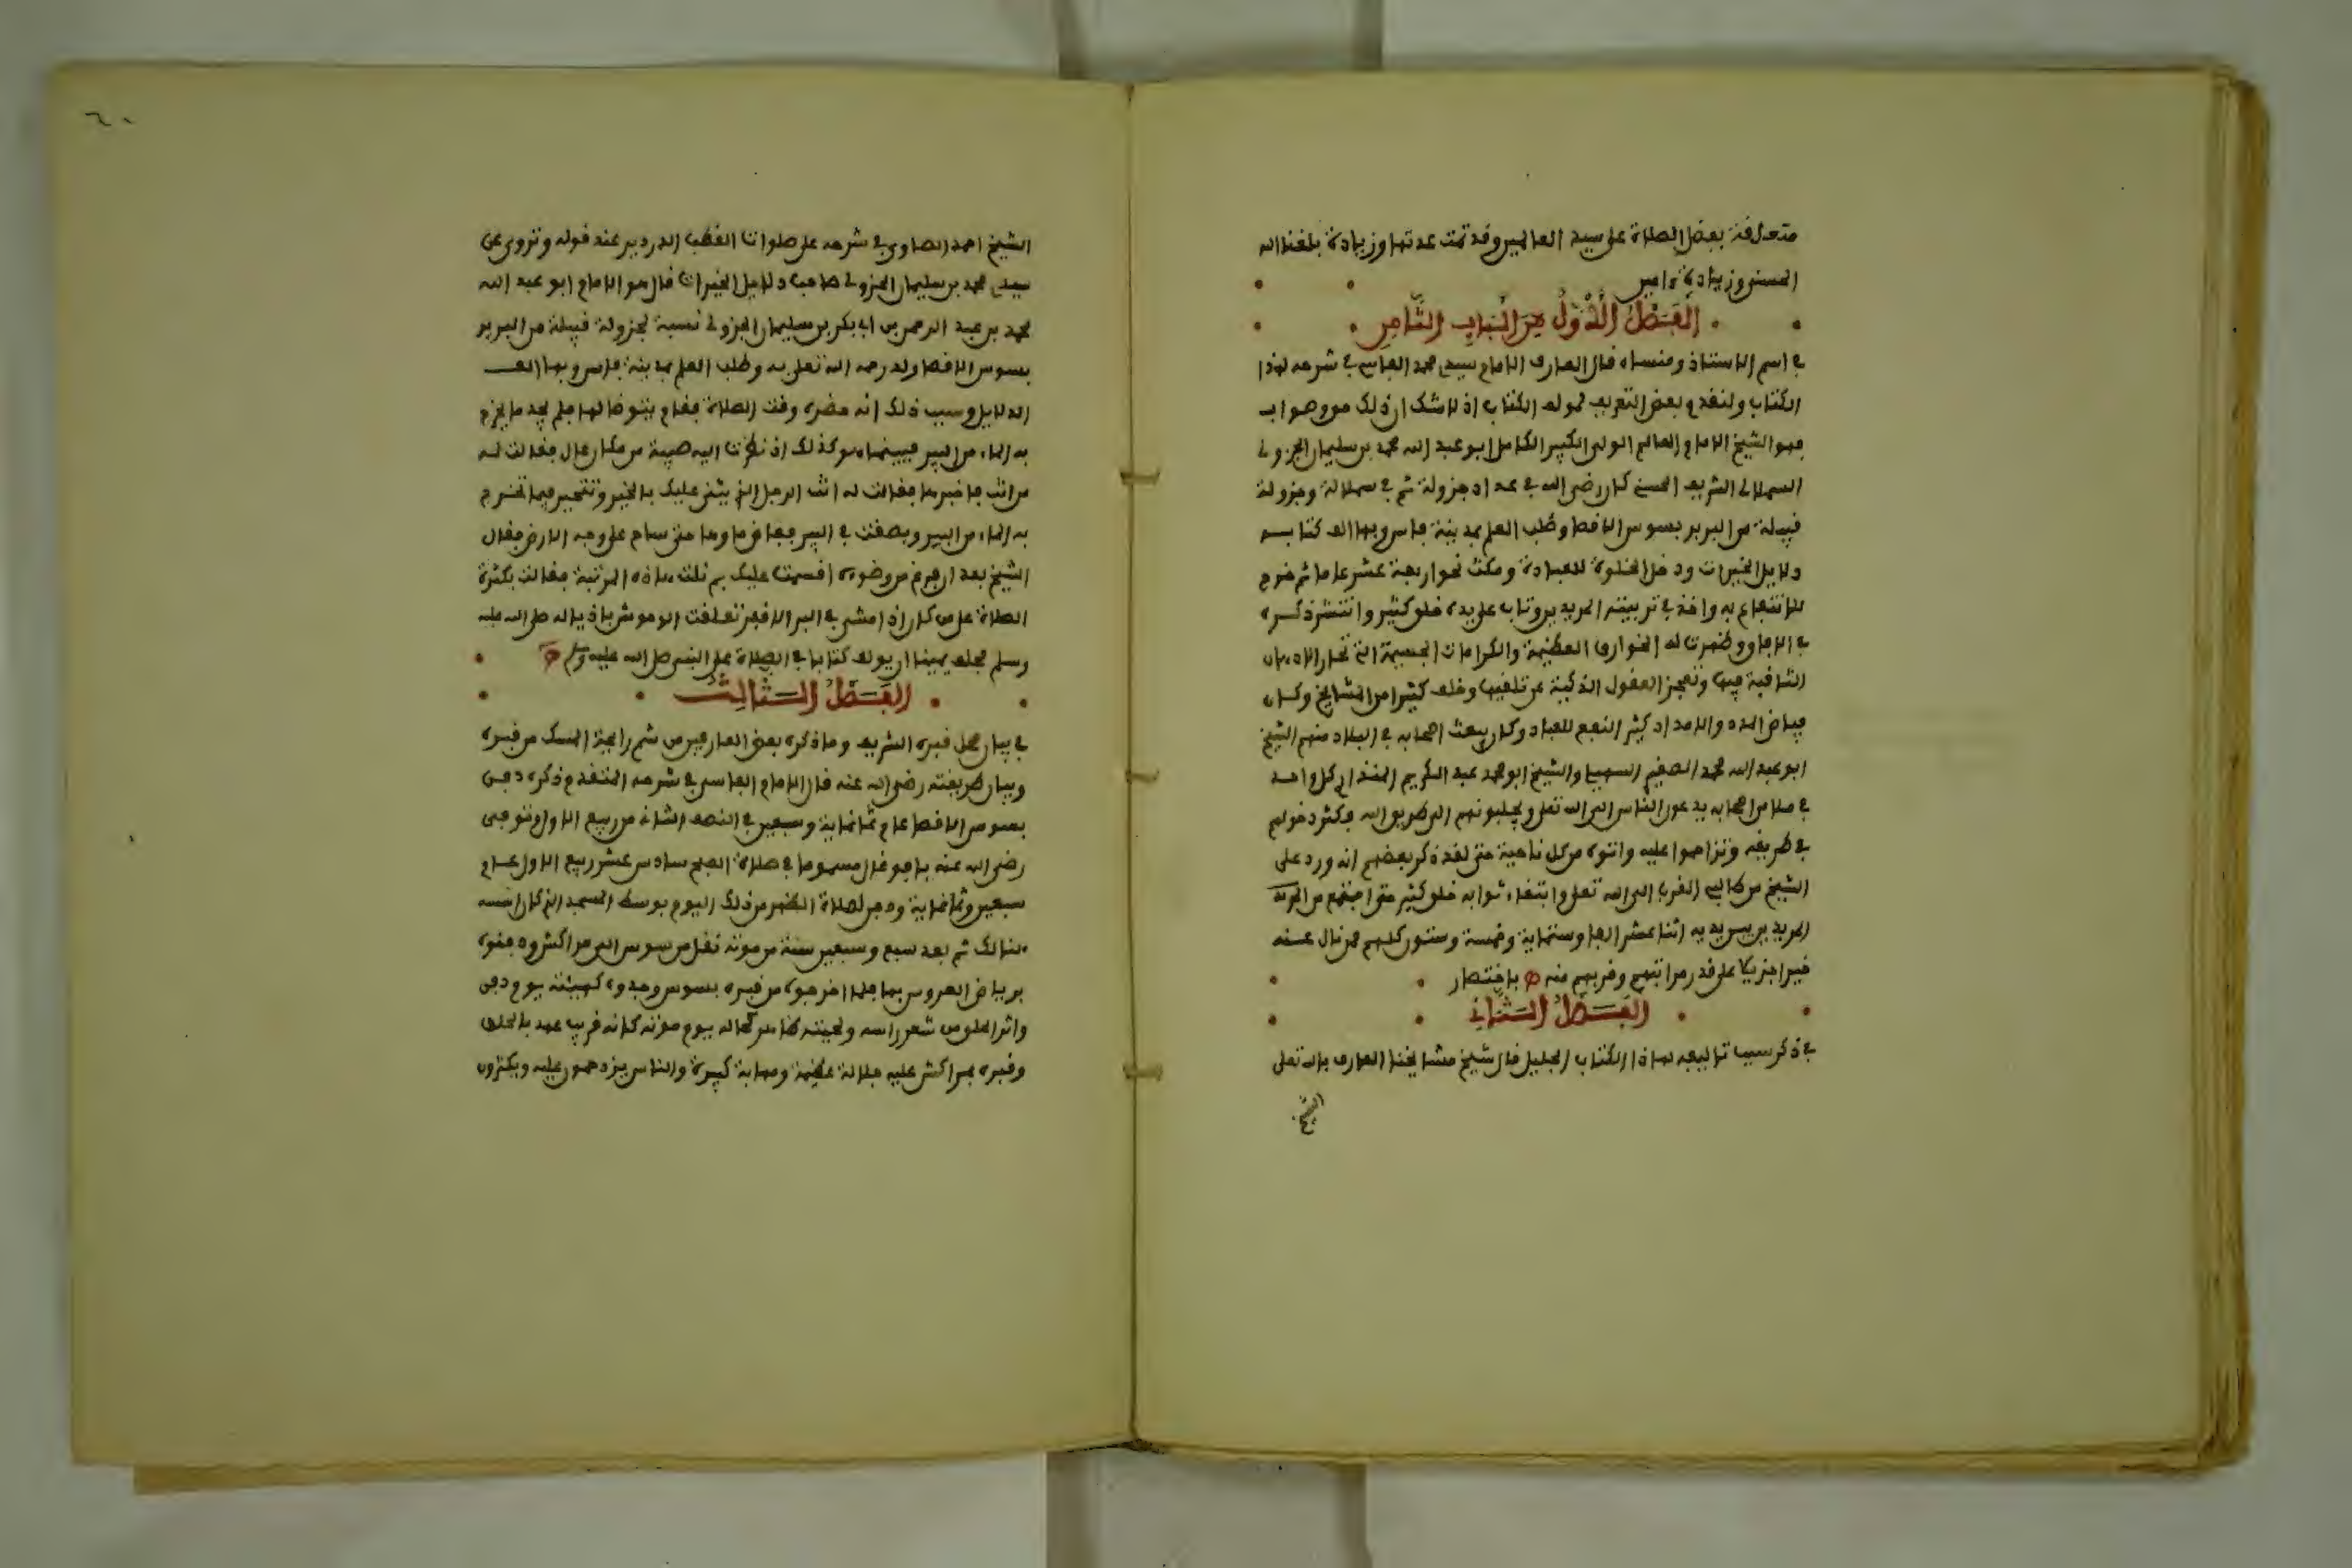 متعلقة بفضل الصلاة على سيد العالمين وقد تمت عدتها وزيادة بلغنا الله
الحسنى وزيادة ءامين
الفصل الأول من الباب الثامن
في اسم الاستاذ ومنشاه قال العارف الامام سيدي محمد الفاسي في شرحه لهذا
الكتاب ولنقدم بعض التعريف بمولف الكتاب اذ لا شك ان ذلك هو
فهو الشيخ الامام العالم الولي الكبير الكامل ابو عبد الله محمد بن سليمان الجزولي
السملالي الشريف الحسني كان رضي الله في عداد جزولة ثم في سملالة وجزولة
قبيلة من البربر بسوس الاقصا وطلب العلم بمدينة فاس وبها الف كتابه
دلايل الخيرات ودخل الخلوة للعبادة ومكث نحو اربعة عشر عاما ثم خرج
للانتفاع به واخذ في تربيته المريدين وتاب على يده خلق كثير وانتشر ذكره
في الافاق وظهرت له الخوارق العظيمة والكرامات الجسيمة التي تحار الاذهان
الثاقبة فيها وتعجز العقول الذكية عن تلقيها وخلف كثيرا من المشايخ وكان
فياض المدد والامداد كثير النفع للعباد وكان يبعث اصحابه في البلاد منهم الشيخ
ابو عبد الله محمد الصغير السهيلي والشيخ ابو محمد عبد الكريم المنذاري كل واحد
في ملا من اصحابه يدعون الناس الى الله تعلى ويجلبونهم الى طريق الله فكثر دخولهم
في طريقه وتزاحموا عليه واتوه من كل ناحية حتى لقد ذكر بعضهم انه ورد على
الشيخ من طالبي القرب الى الله تعلى وابتغاء ثوابه خلق كثير حتى اجتمع من
المريدين بين يديه اثنا عشر الفا وستماية وخمسة وستون كلهم ممن نال عنه
خيرا جزيلا على قدر مراتبهم وقربهم منه اهـ باختصار
الفصل الثاني
في ذكر سبب تاليفه لهاذا الكتاب الجليل قال شيخ مشايخنا العارف بالله تعلى
الشيخ
٦٠
الشيخ احمد الصاوي في شرحه على صلوات القطب الدردير عند قوله وتروى عن
سيدي محمد بن سليمان الجزولي صاحب دلايل الخيرات قال هو الامام ابو عبد الله
محمد بن عبد الرحمن بن ابي بكر بن سليمان الجزولي نسبة لجزولة قبيلة من البربر
بسوس الاقصا ولد رحمه الله تعلى به وطلب العلم بمدينة فاس وبها الف
الدلايل وسبب ذلك انه حضره وقت الصلاة فقام يتوضا لها فلم يجد ما يخرج
به الماء من البير فبينما هو كذلك اذ نظرت اليه صبية من مكان عال فقالت له
من انت فاخبرها فقالت له انت الرجل الذي يثنى عليك بالخير وتتحير فيما تخرج
به الماء من البير وبصقت في البير ففاض ماوها حتى ساح على وجه الارض فقال
الشيخ بعد ان فرغ من وضوءه اقسمت عليك بم نلت هاذه المرتبة فقالت بكثرة
الصلاة على من كان اذا مشى في البر الاقفر تعلقت الوحوش باذياله صلى الله عليه
وسلم فحلف يمينا ان يولف كتابا في الصلاة على النبي صلى الله عليه وسلم اهـ
الفصل الثالث
في بيان محل قبره الشريف وما ذكره بعض العارفين من شم رايحة المسك من قبره
وبيان طريقته رضي الله عنه قال الامام الفاسي في شرحه المتقدم ذكره دفن
بسوس الاقصا عام ثمانماية وسبعين في النصف الثاني من ربيع الاول توفي
رضي الله عنه بافوغال مسموما في صلاة الصبح سادس عشر ربيع الاول عام
سبعين وثمانماية ودفن لصلاة الظهر من ذلك اليوم بوسط المسجد الذي كان اسسه
هنالك ثم بعد سبع وسبعين سنة من موته نقل من سوس الى مراكش ودفنوه
برياض العروس بها فلما اخرجوه من قبره بسوس وجدوه كهيئته يوم دفن
واثر الحلق من شعر راسه ولحيته ظاهر كحاله يوم موته كانه قريب عهد بالحلق
وقبره بمراكش عليه جلالة عظيمة ومهابة كبيرة والناس يزدحمون عليه ويكثرون